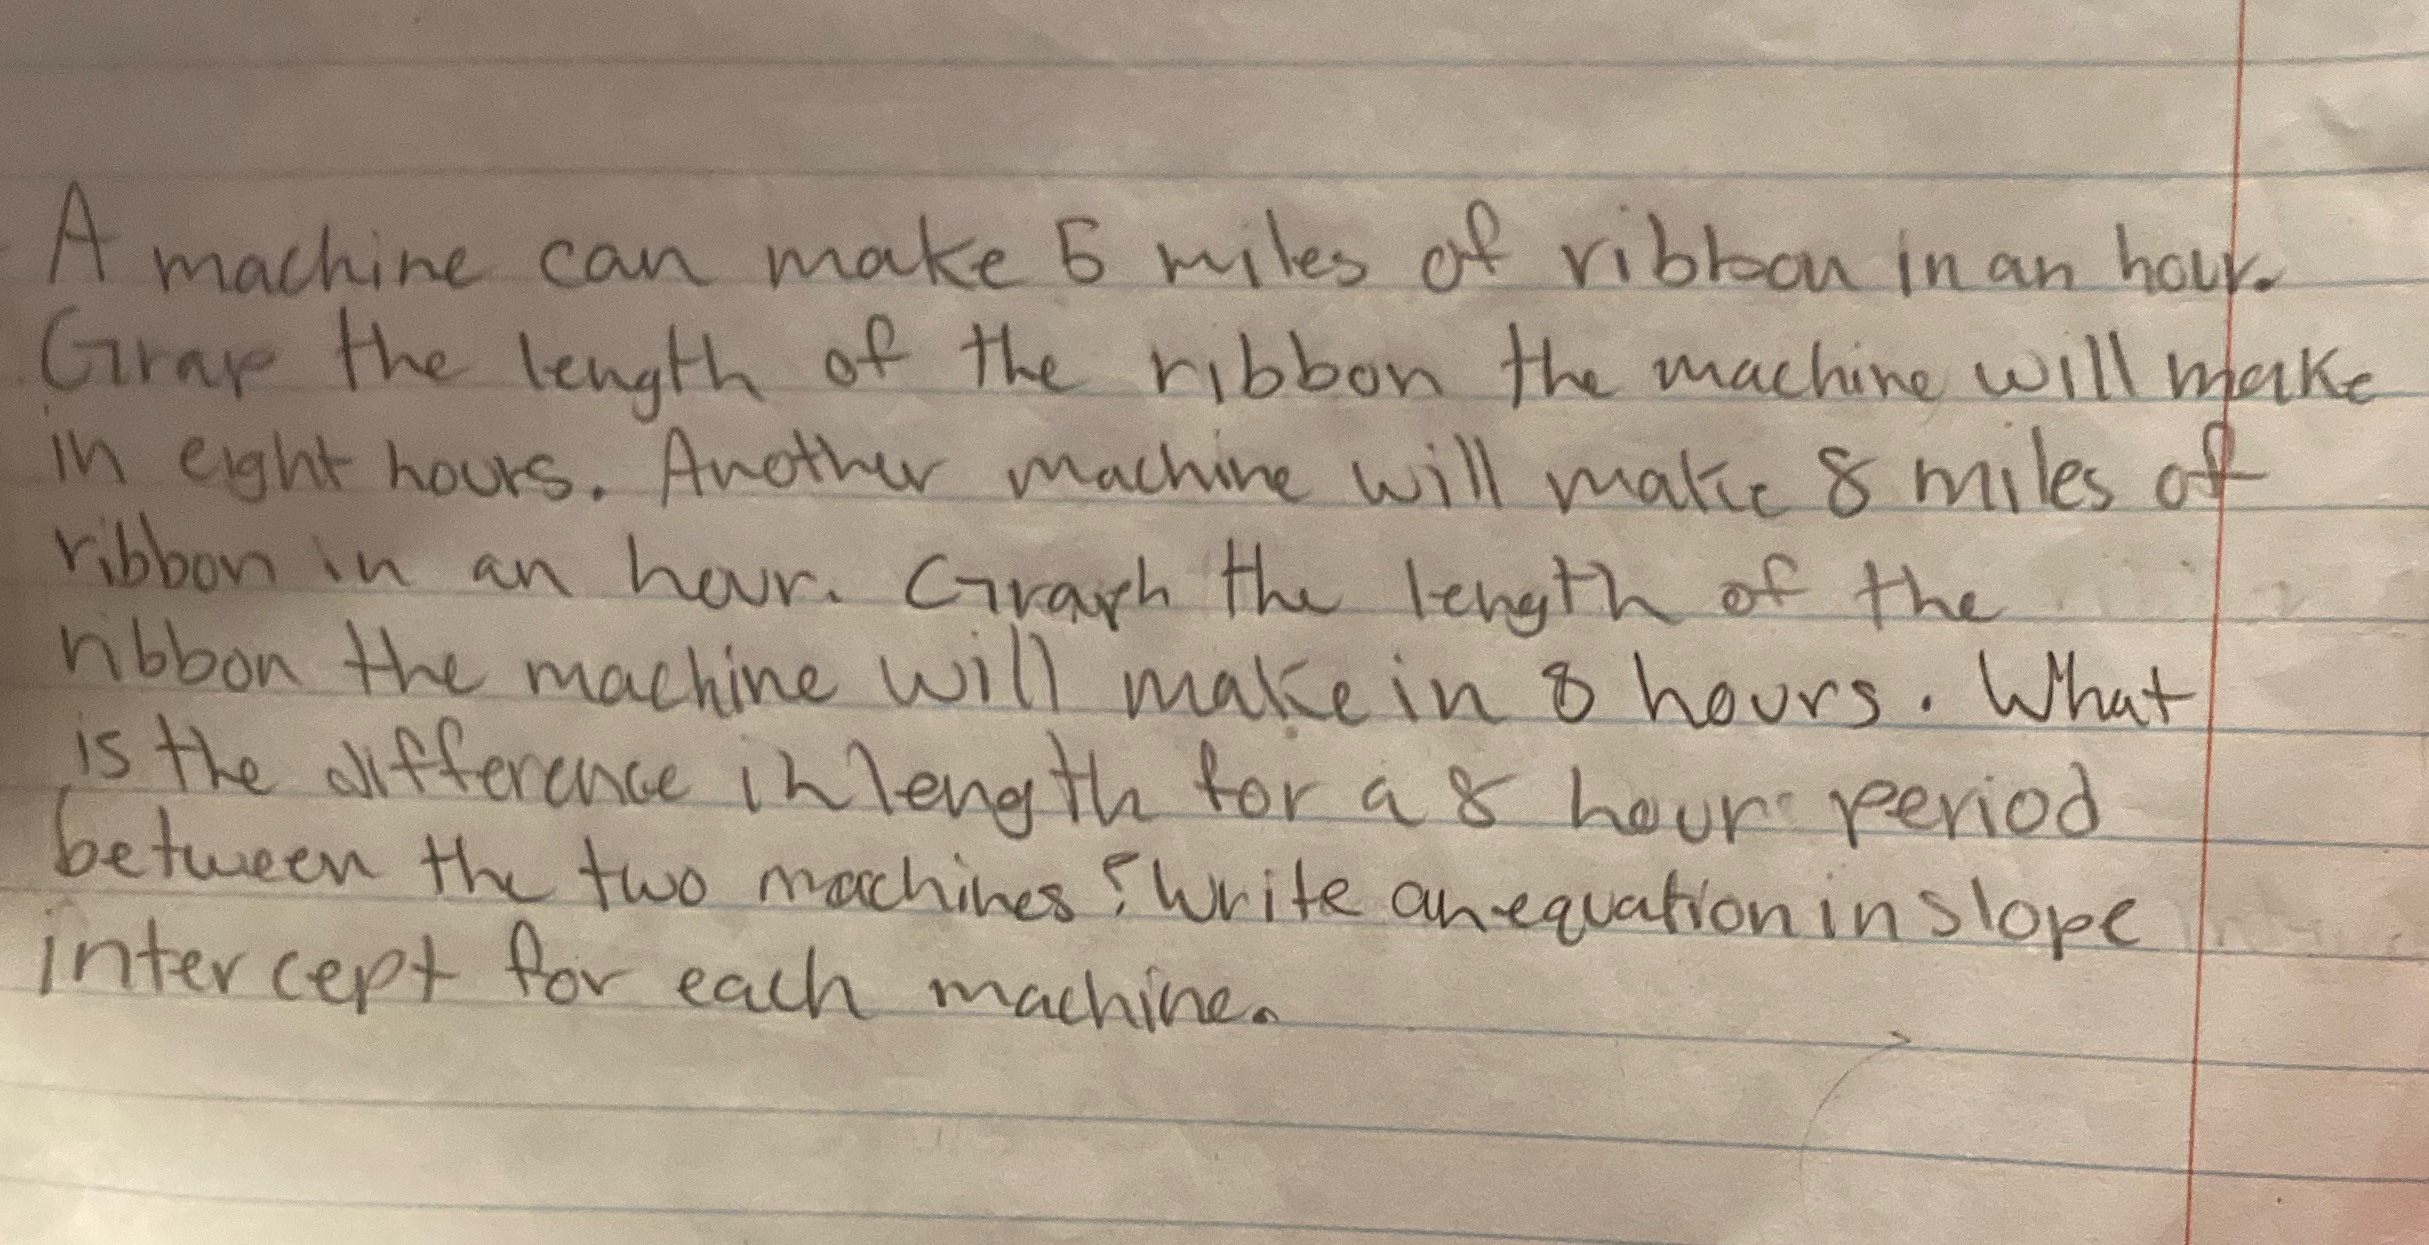 A machine can make 5 miles of ribbon in an hour.
Grap the length of the ribbon the machine will make
in eight hours. Another machine will make 8 miles of
ribbon in an hour. Graph the length of the
ribbon the machine will make in 8 hours. What
is the difference in length for a 8 hour period
between the two machines? Write an equation in slope
intercept for each machine.